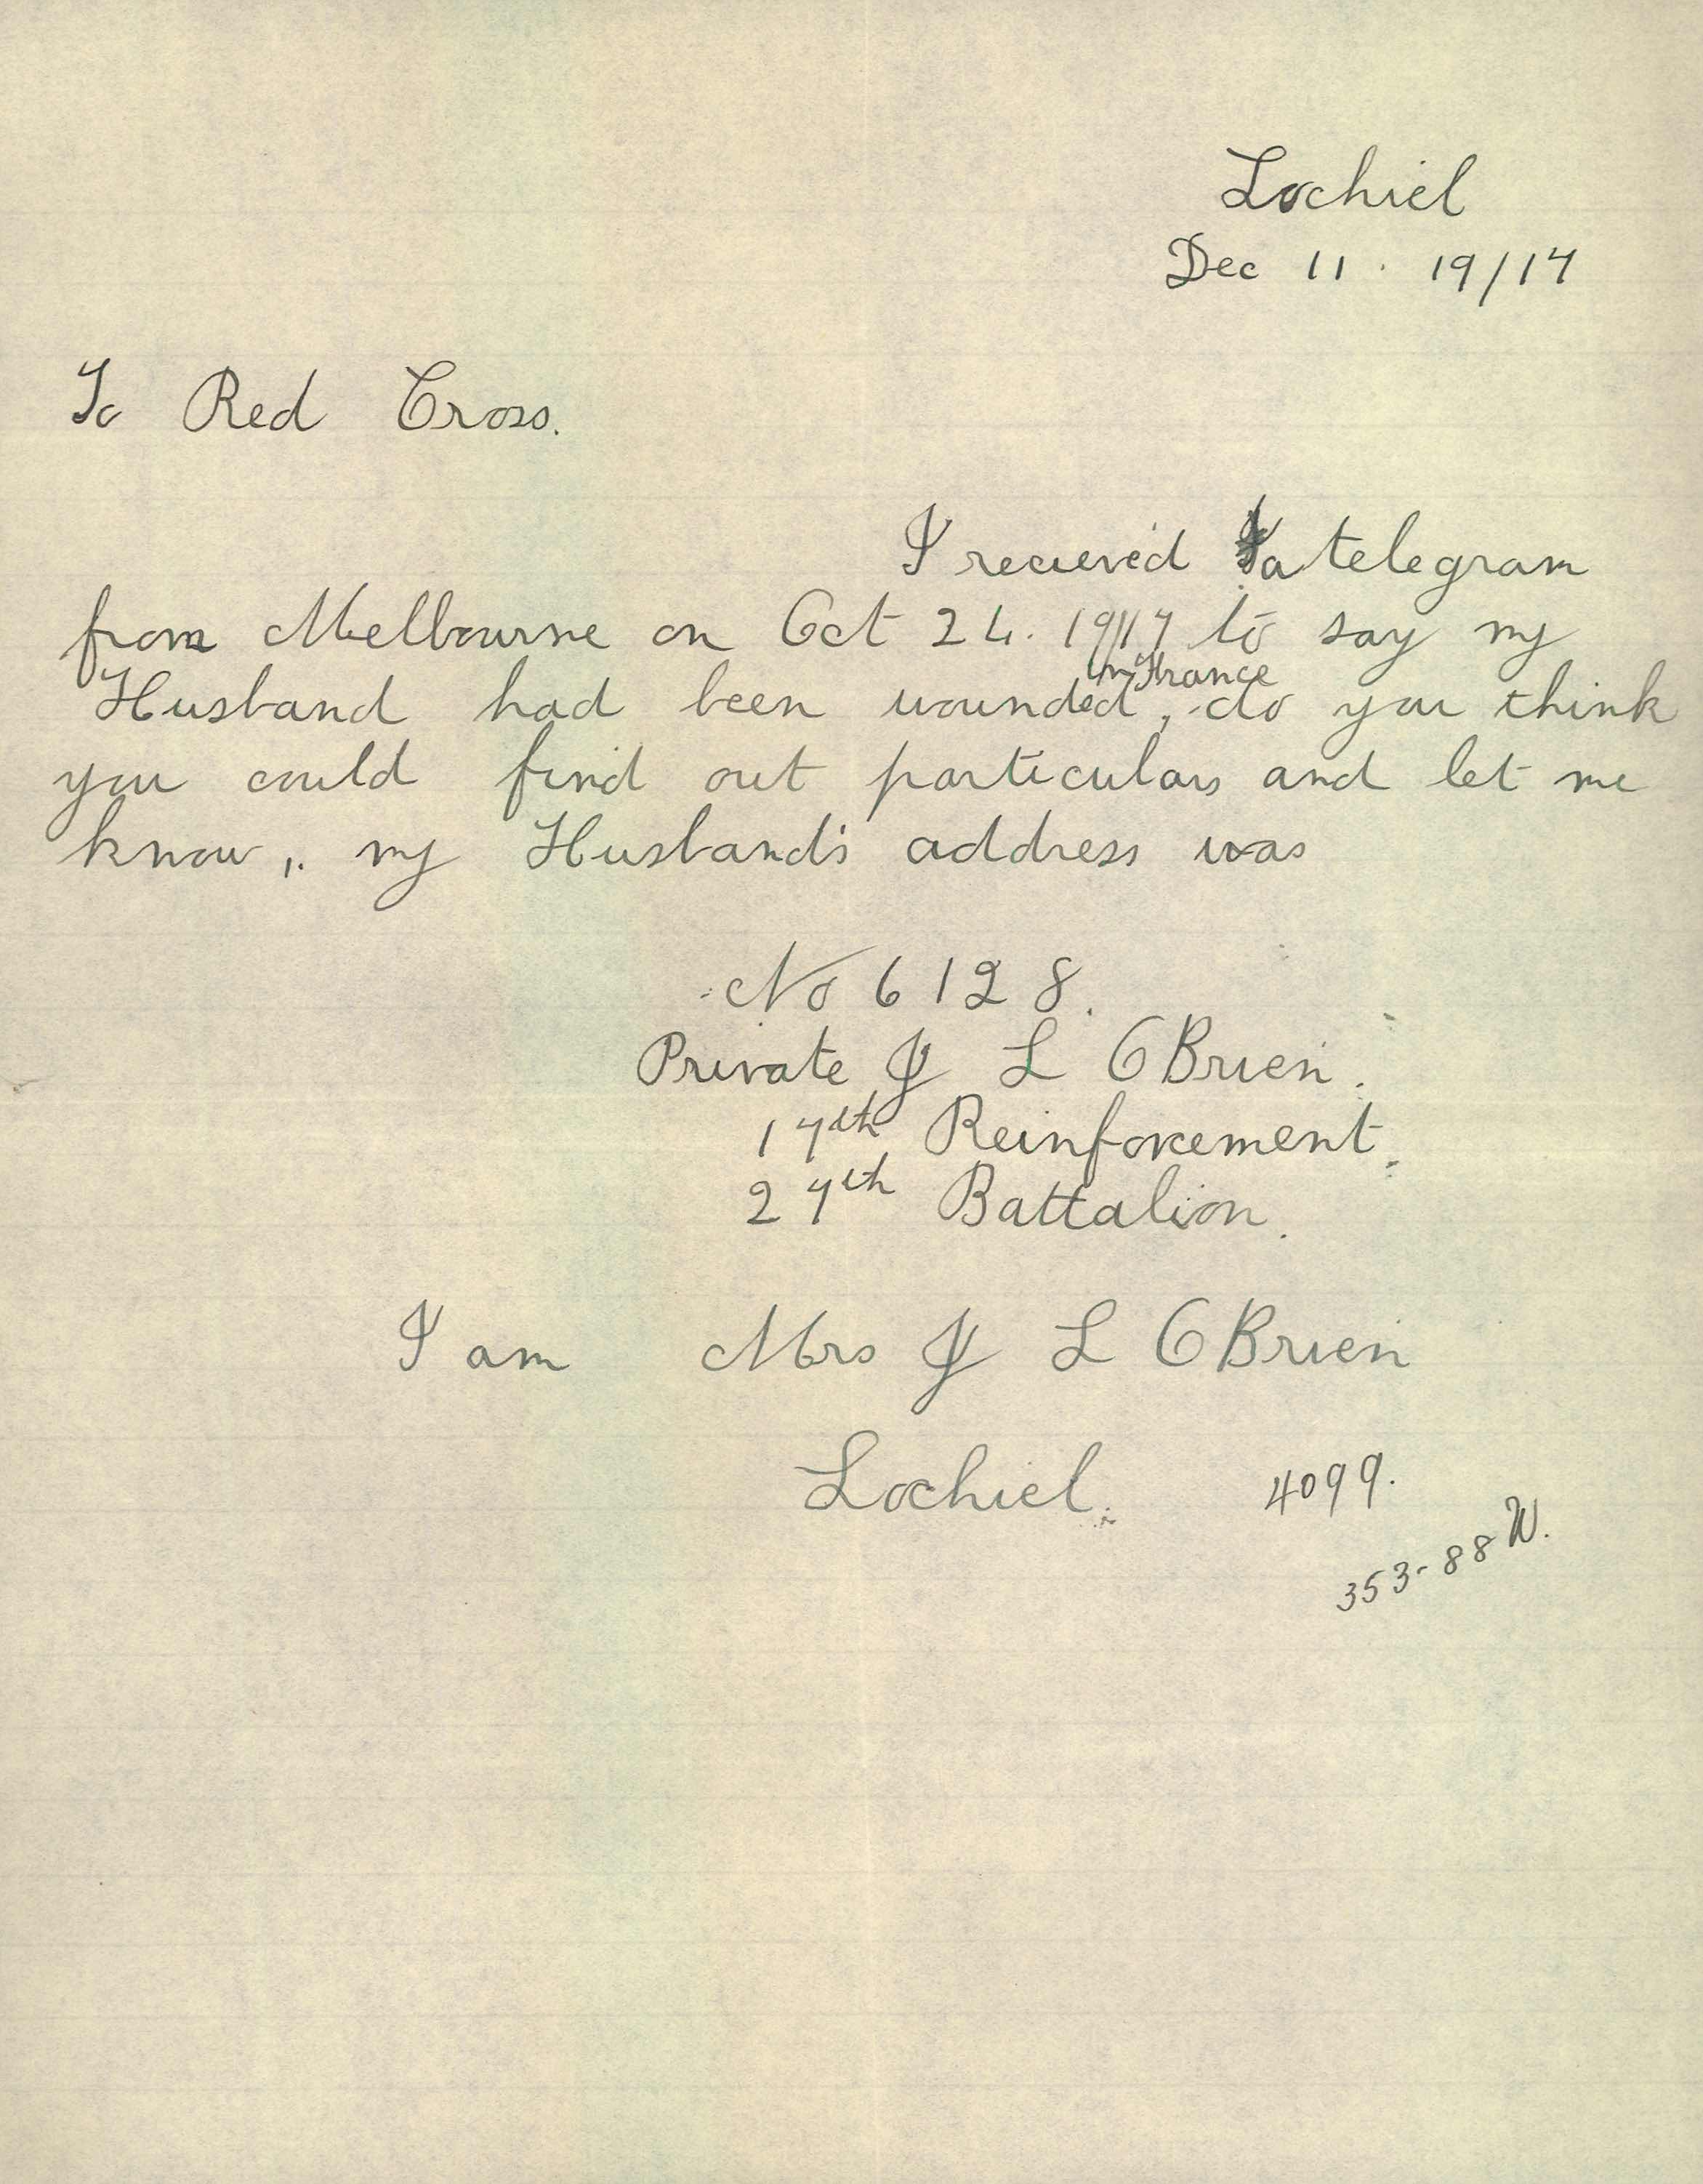 Lochiel
Dec 11. 19/17
To Red Cross.
I recieved a telegram
from Melbourne on Oct 24. 19/17 to say my
in France
Husband had been wounded, do you think
you could find out particulars and let me
know,. my Husband's address was
No 6128.
Private J L OBrien.
17th Reinforcement.
27th Battalion.
I am Mrs J L OBrien
Lochiel.
4099.
353-88 W.